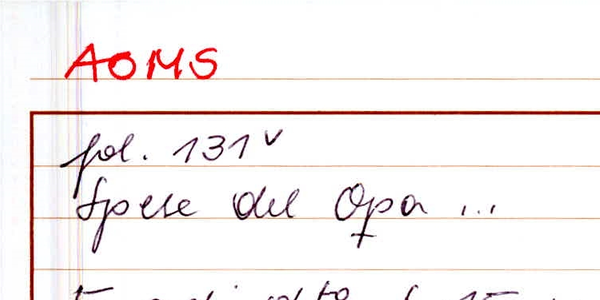 AOMS
fol. 131v
Spese del Opa ...